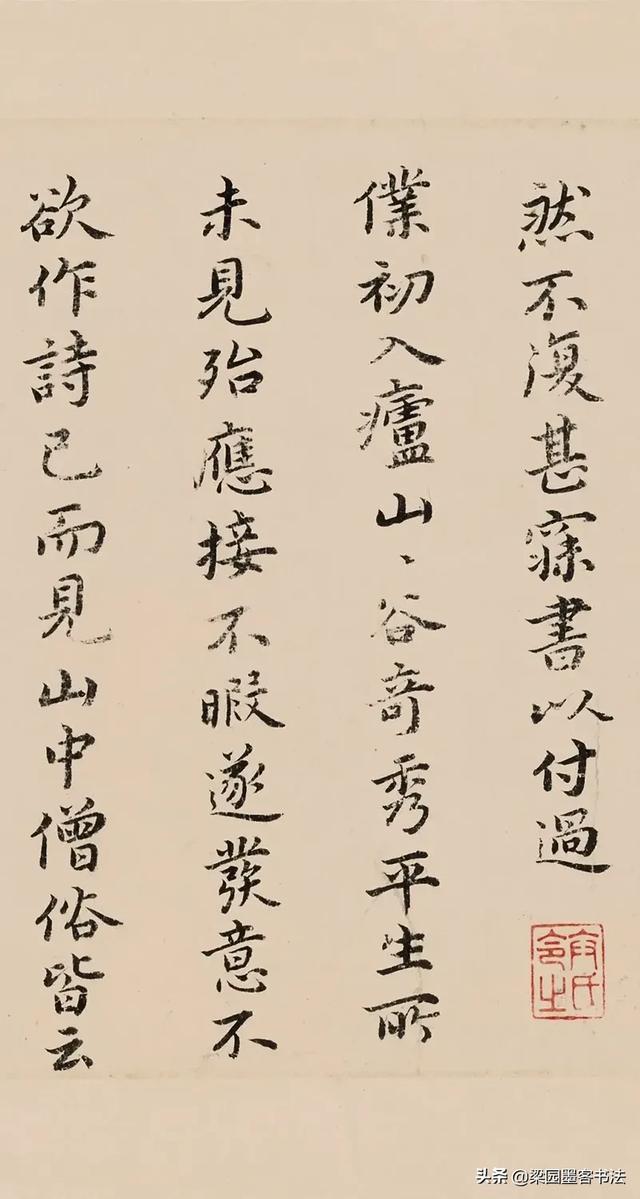 然不復甚寐書以付過
僕初入廬山〻谷奇秀平生所
未見殆應接不暇遂發意不
欲作詩已而見山中僧俗皆云
头条 @梁园墨客书法